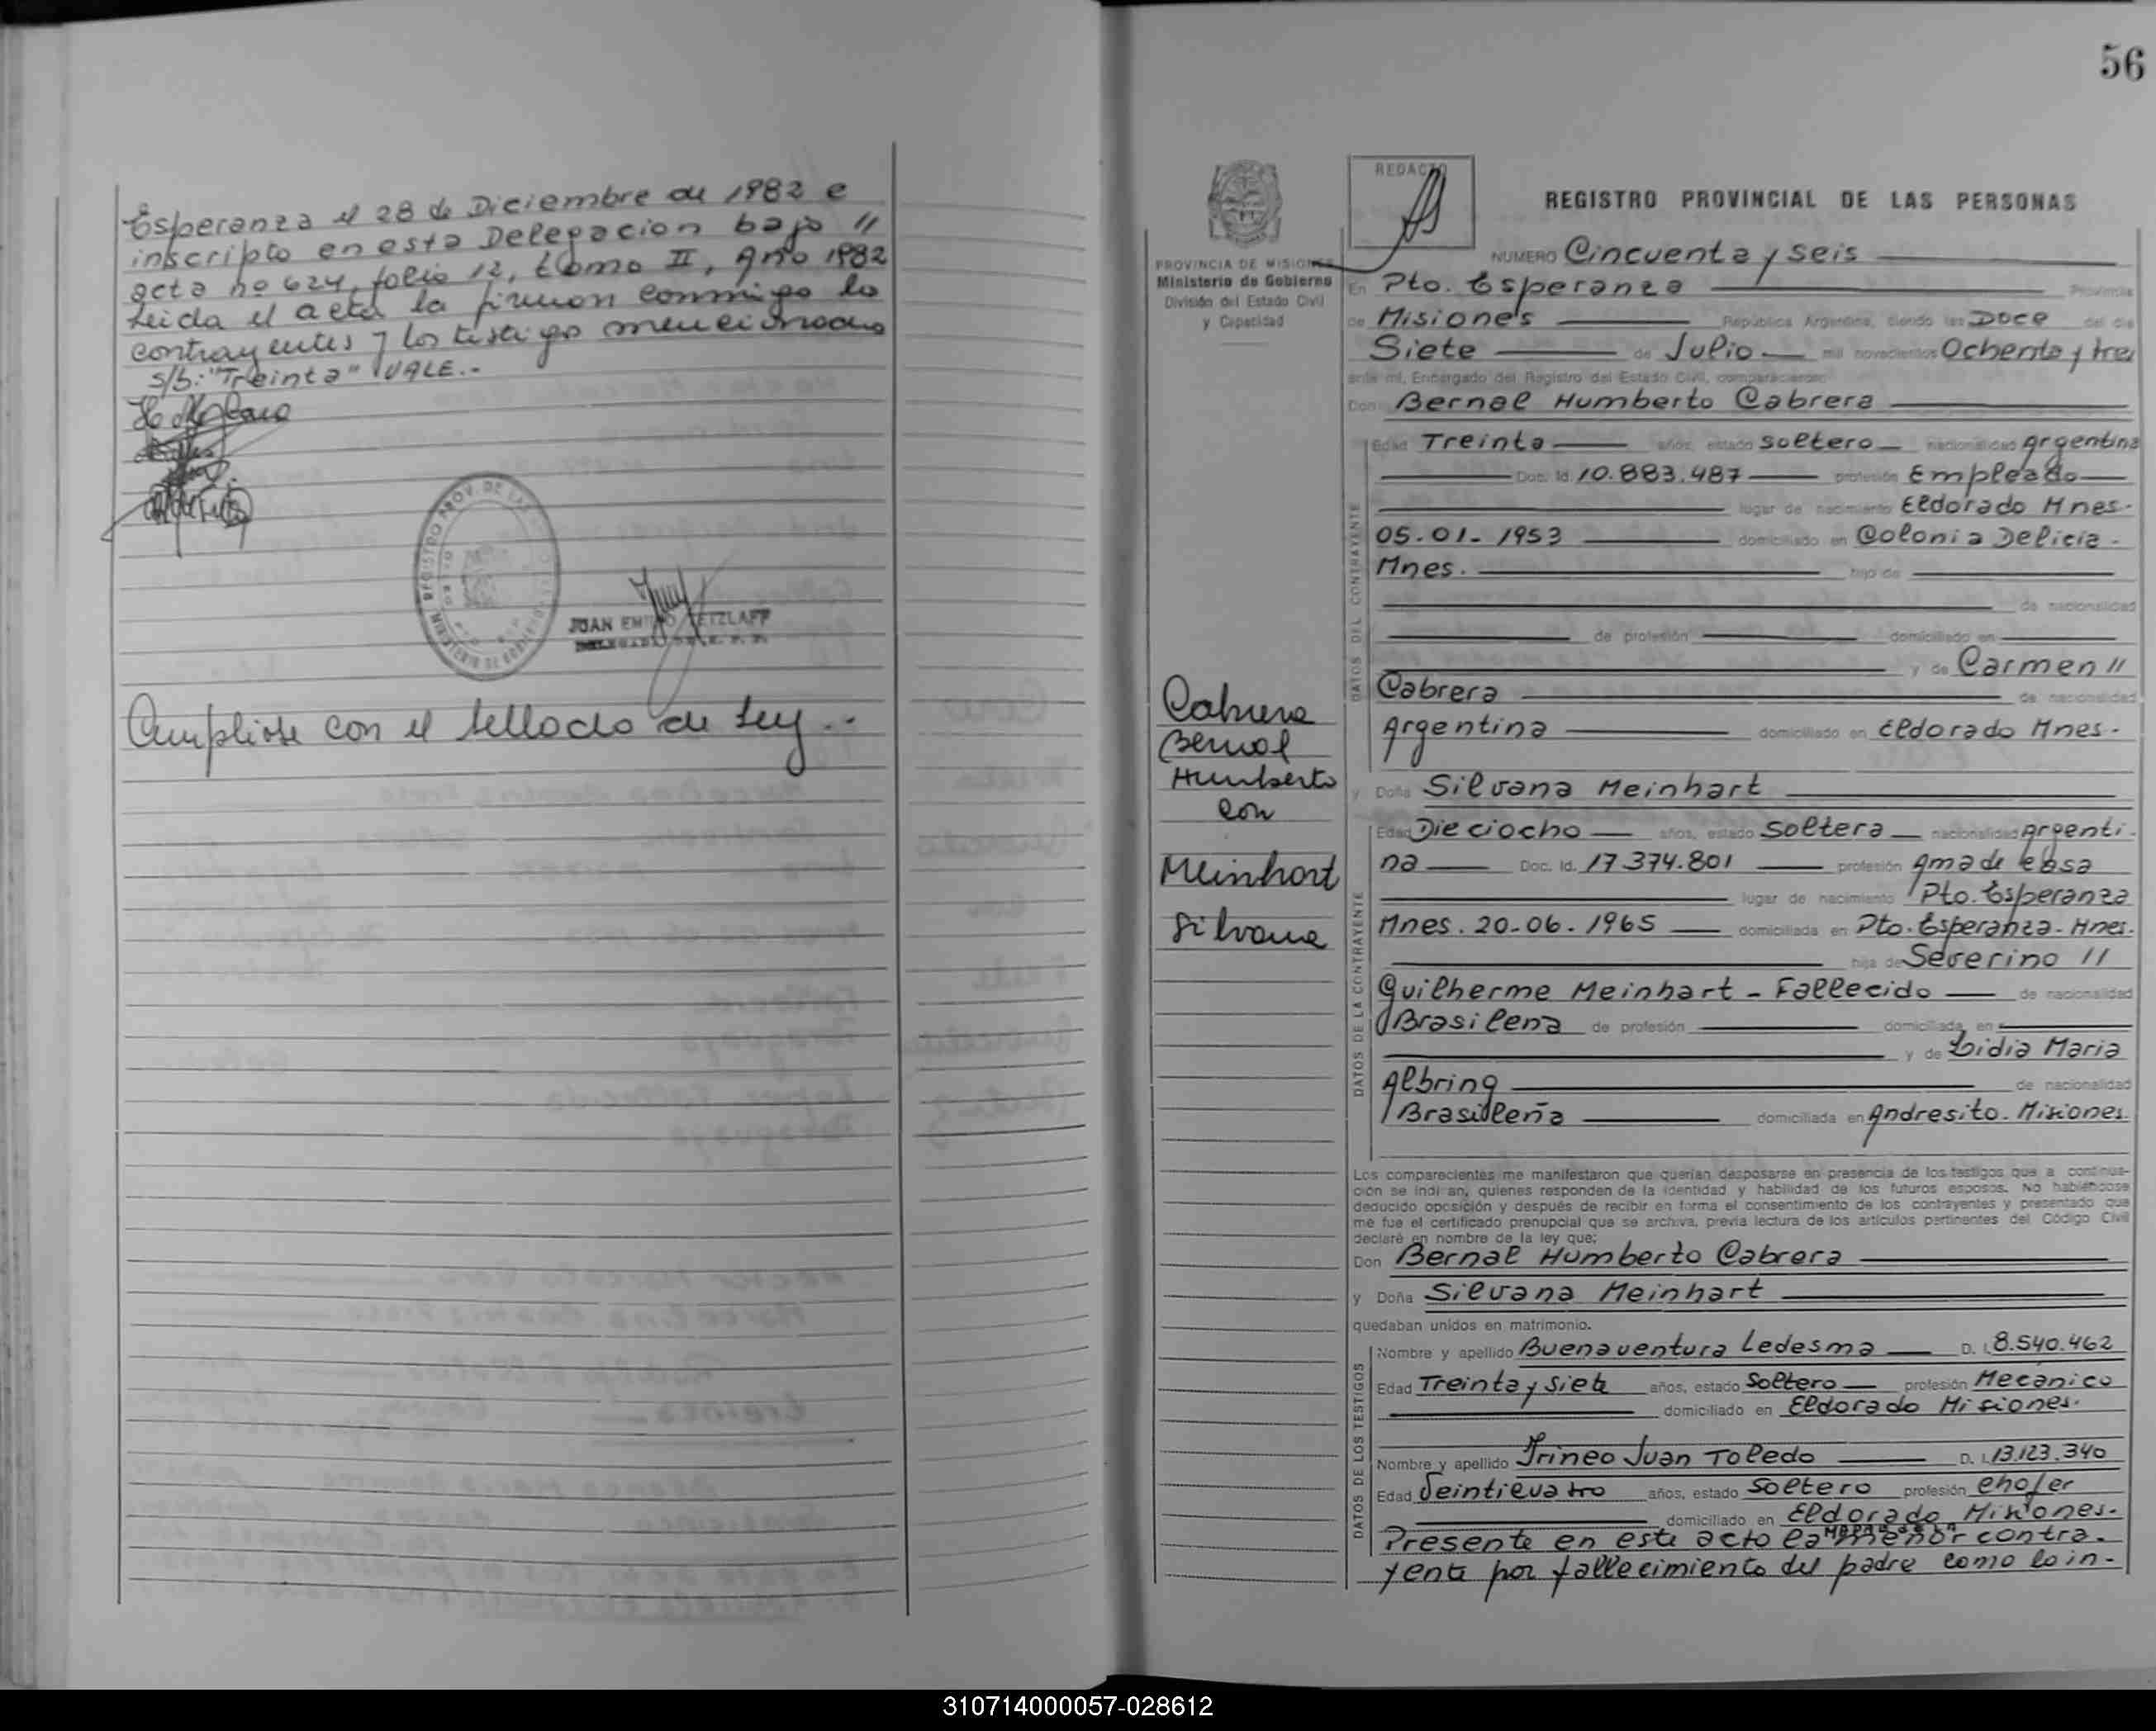 Esperanza el 28 de Diciembre de 1982 e
inscripto en esta Delegacion bajo //
acta nº 624, folio 12, tomo II, Año 1982
Leida el acta la firman conmigo los
contrayentes y los testigos mencionados
s/b: "Treinta" VALE.-
JUAN EMILIO RETZLAFF
Cumpliose con el sellado de Ley.-
56
REDACTO
REGISTRO PROVINCIAL DE LAS PERSONAS
PROVINCIA DE MISIONES
Ministerio de Gobierno
División del Estado Civil
y Capacidad
NUMERO Cincuenta y seis
En Pto. Esperanza Provincia
de Misiones República Argentina, siendo las Doce del día
Siete de Julio mil novecientos Ochenta y tres
ante mí, Encargado del Registro del Estado Civil, comparecieron:
Don Bernal Humberto Cabrera
DATOS DEL CONTRAYENTE
Edad Treinta años, estado soltero nacionalidad Argentina
Doc. Id. 10.883.487 profesión Empleado
lugar de nacimiento Eldorado Mnes.
05.01.1953 domiciliado en Colonia Delicia -
Mnes. hijo de
de nacionalidad
de profesión domiciliado en
y de Carmen //
Cabrera de nacionalidad
Argentina domiciliado en Eldorado Mnes.
Cabrera
Bernal
Humberto
con
Meinhart
Silvana
y Doña Silvana Meinhart
DATOS DE LA CONTRAYENTE
Edad Dieciocho años, estado Soltera nacionalidad Argenti-
na Doc. Id. 17.374.801 profesión Ama de casa
lugar de nacimiento Pto. Esperanza
Mnes. 20-06.1965 domiciliada en Pto. Esperanza - Mnes.
hija de Severino //
Guilherme Meinhart - Fallecido de nacionalidad
Brasilena de profesión domiciliada en
y de Lidia Maria
Albring de nacionalidad
Brasileña domiciliada en Andresito. Misiones.
Los comparecientes me manifestaron que querían desposarse en presencia de los testigos que a continua-
ción se indi an, quienes responden de la identidad y habilidad de los futuros esposos. No habiéndose
deducido oposición y después de recibir en forma el consentimiento de los contrayentes y presentado que
me fue el certificado prenupcial que se archiva, previa lectura de los artículos pertinentes del Código Civil
declaré en nombre de la ley que:
Don Bernal Humberto Cabrera
y Doña Silvana Meinhart
quedaban unidos en matrimonio.
DATOS DE LOS TESTIGOS
Nombre y apellido Buenaventura Ledesma D. I. 8.540.462
Edad Treinta y siete años, estado Soltero profesión Mecanico
domiciliado en Eldorado Misiones.
Nombre y apellido Irineo Juan Toledo D. I. 13.123.340
Edad Veinticuatro años, estado Soltero profesión chofer
domiciliado en Eldorado Misiones.
Presente en este acto la menor contra-
yente por fallecimiento del padre como lo in-
310714000057-028612